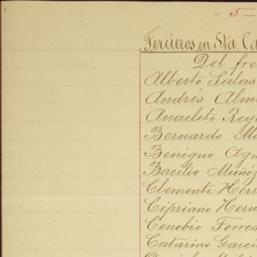 - 5 -
Tercieros en Sta Ca
Del fre
Alberto Salas
Andrés Alm
Anacleto Rey
Bernardo M
Benigno Agu
Basilio Muñoz
Clemente Herr
Cipriano Hern
Cenobio Torres
Catarino Garcia